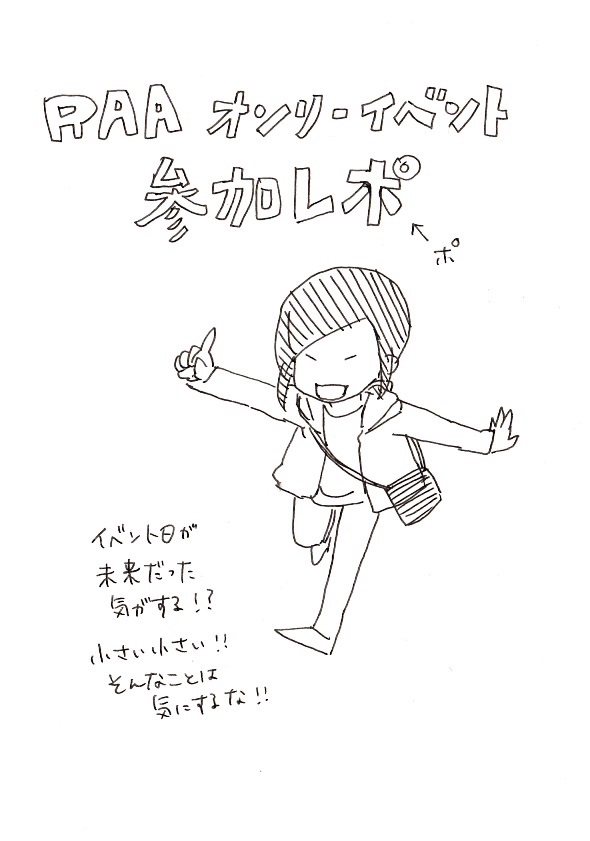 RAA オンリーイベント
参加レポ
ポ
イベント日が
未来だった
気がする!?
小さい小さい!!
そんなことは
気にするな!!